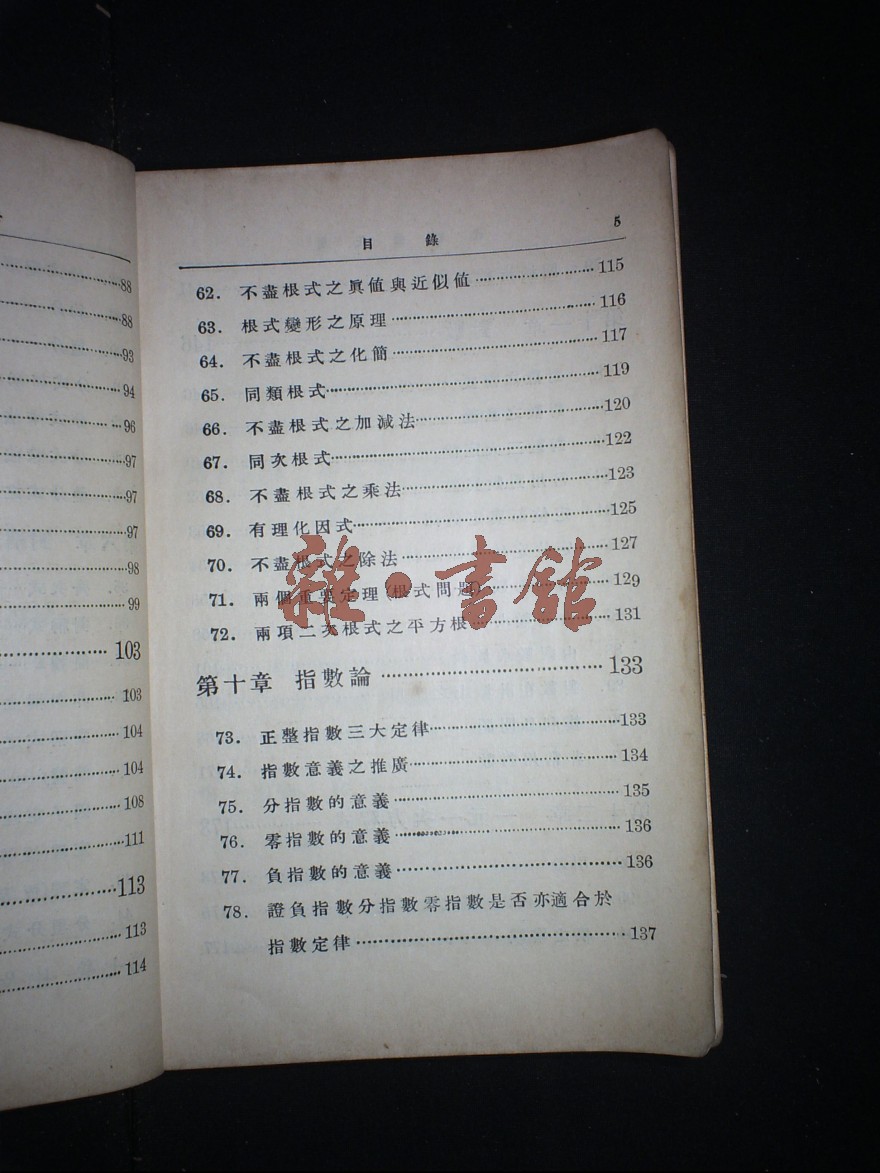 88
88
93
94
96
97
97
97
98
99
103
103
104
104
108
111
113
113
114
目錄 5
62. 不盡根式之眞値與近似値 115
63. 根式變形之原理 116
64. 不盡根式之化簡 117
65. 同類根式 119
66. 不盡根式之加減法 120
67. 同次根式 122
68. 不盡根式之乘法 123
69. 有理化因式 125
70. 不盡根式之除法 127
71. 兩個重要定理(根式問題) 129
72. 兩項二次根式之平方根 131
第十章 指數論 133
73. 正整指數三大定律 133
74. 指數意義之推廣 134
75. 分指數的意義 135
76. 零指數的意義 136
77. 負指數的意義 136
78. 證負指數分指數零指數是否亦適合於
指數定律 137
雜·書館